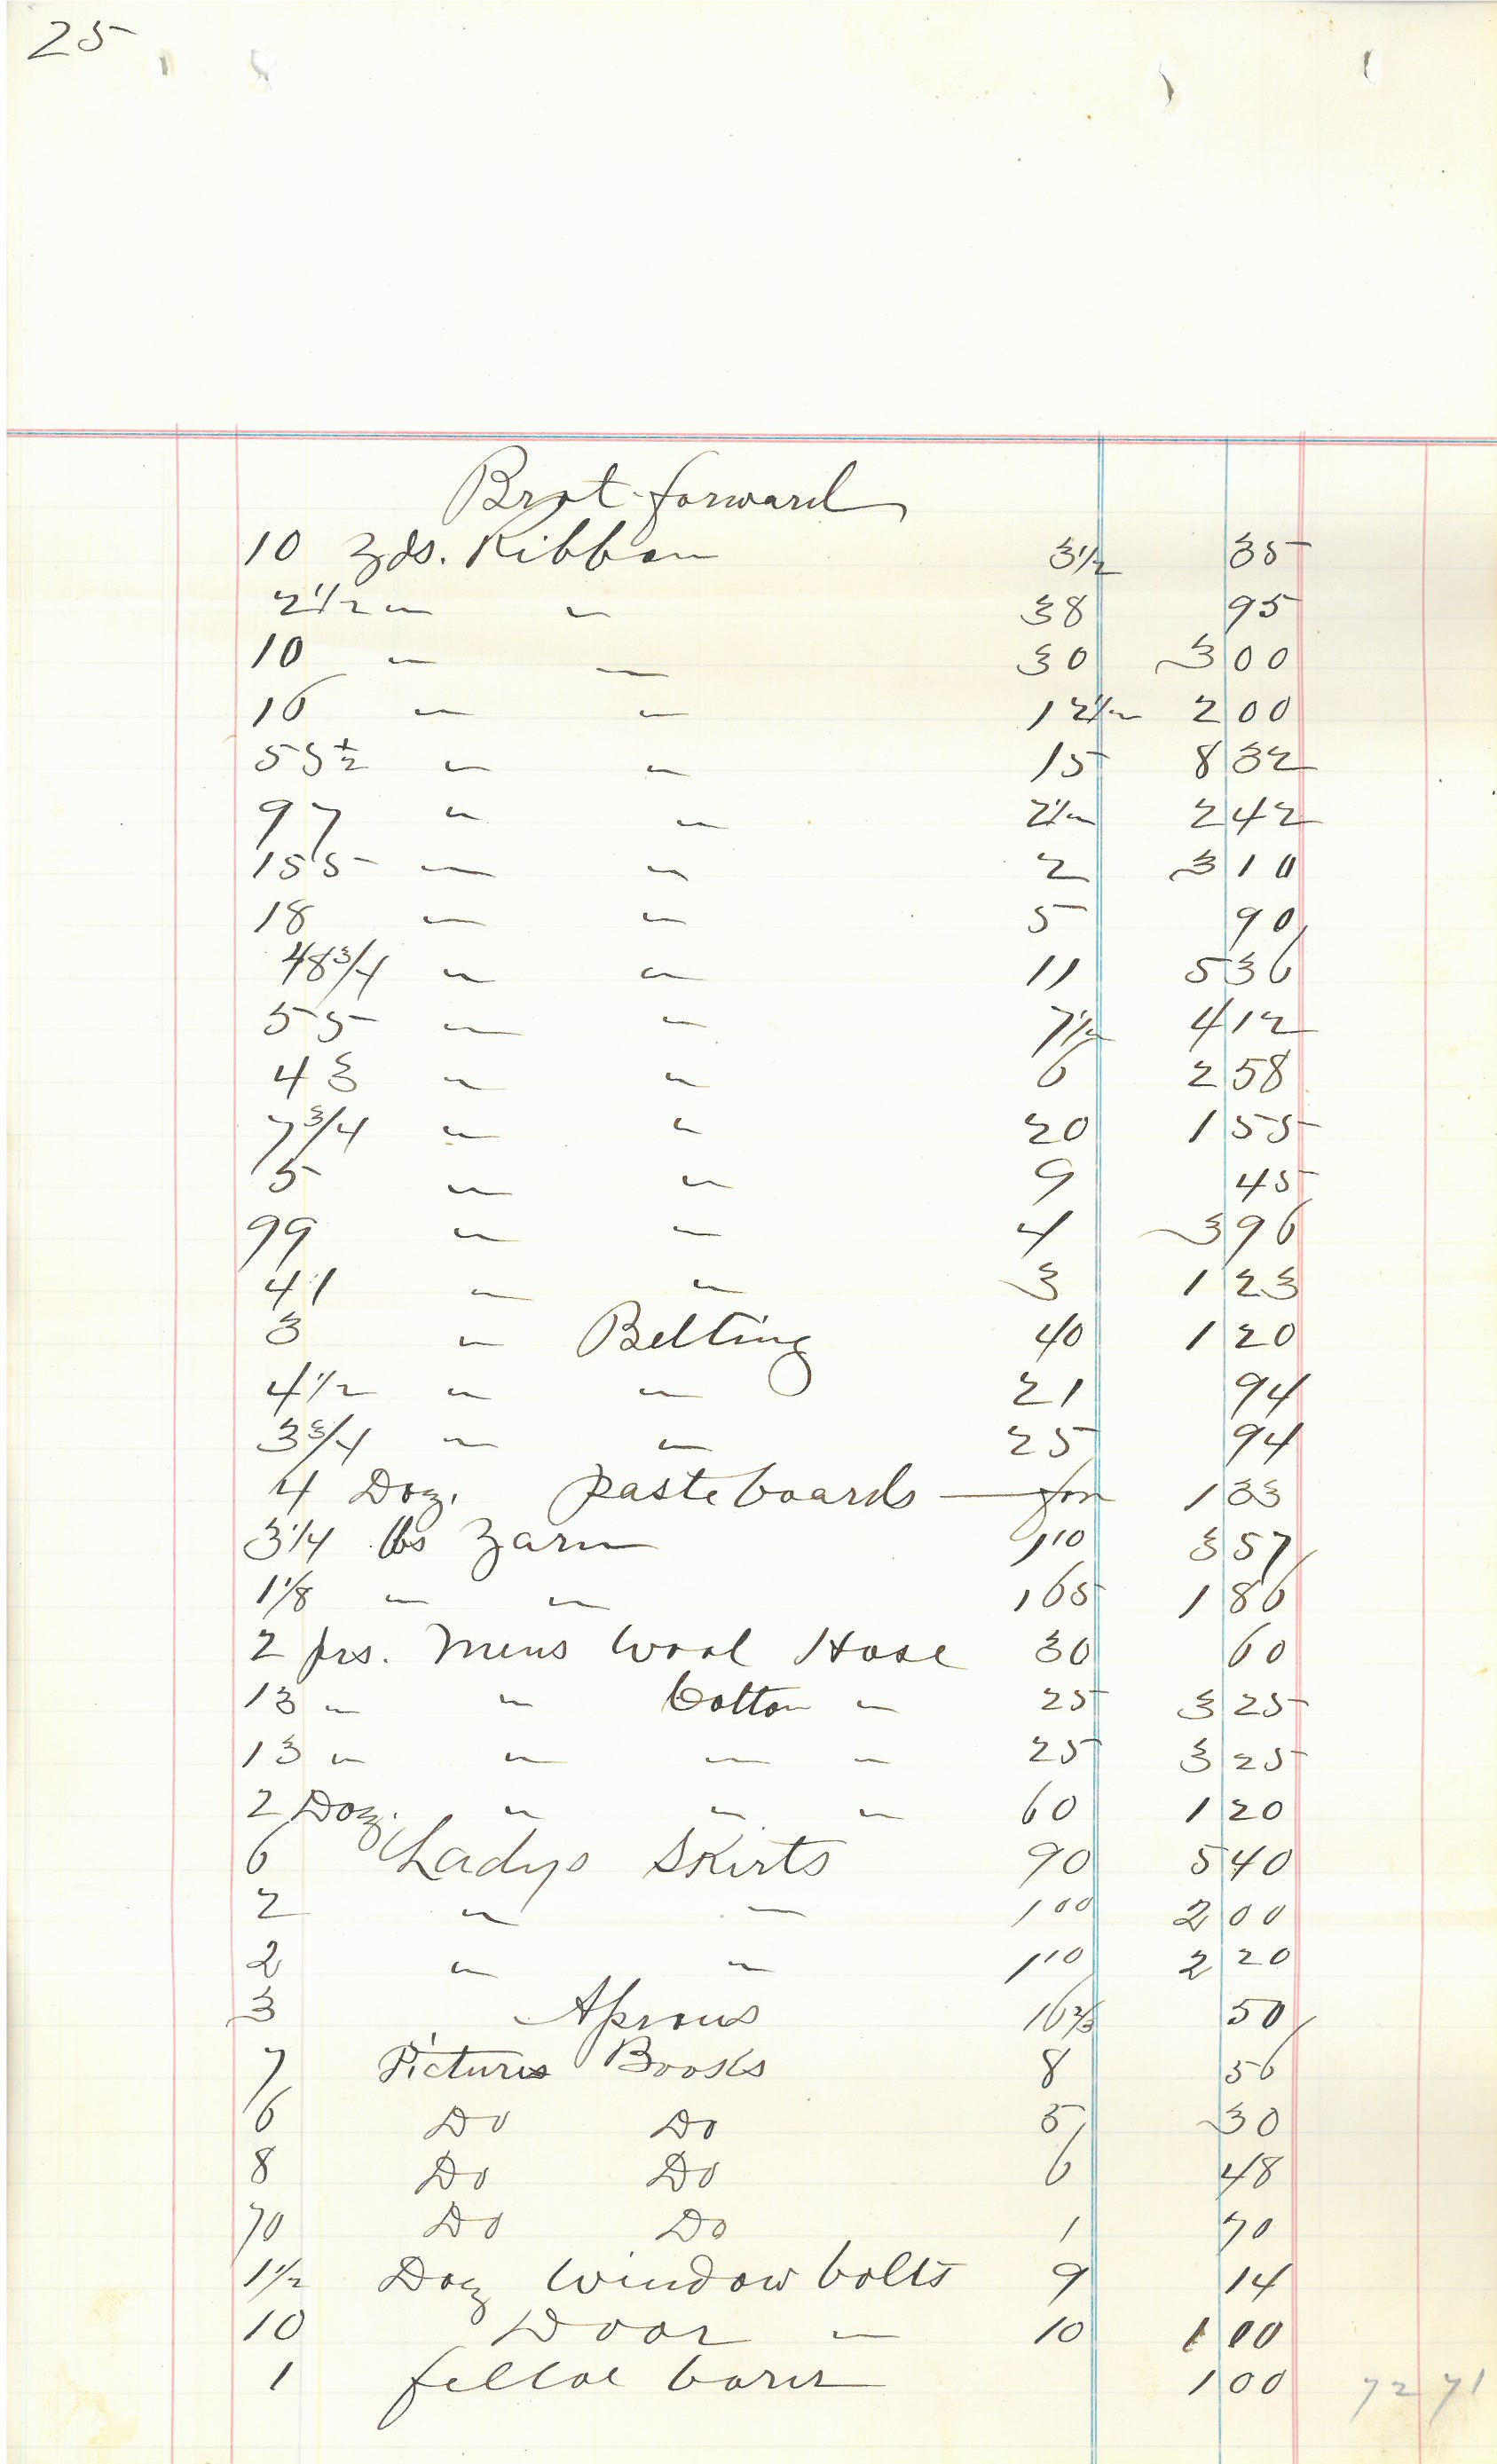 25
Brot forward
10 yds. Ribbon 3 1/2 35
2 1/2 " " 38 95
10 " " 30 3 00
16 " " 12 1/2 2 00
55 1/2 " " 15 8 32
97 " " 2 1/2 2 42
155 " " 2 3 10
18 " " 5 90
48 3/4 " " 11 5 36
55 " " 7 1/2 4 12
43 " " 6 2 58
7 3/4 " " 20 1 55
5 " " 9 45
99 " " 4 3 96
41 " " 3 1 23
3 " Belting 40 1 20
4 1/2 " " 21 94
3 3/4 " " 25 94
4 Doz. pasteboards — for 1 33
3 1/4 lbs yarn 1 10 3 57
1 1/8 " " 1 65 1 86
2 prs. Mens Wool Hose 30 60
13 " " Cotton " 25 3 25
13 " " " " 25 3 25
2 Doz. " " " 60 1 20
6 Ladys Skirts 90 5 40
2 " " 1 00 2 00
2 " " 1 10 2 20
3 Aprons 16 2/3 50
7 Pictures Books 8 56
6 Do Do 5 30
8 Do Do 6 48
70 Do Do 1 70
1 1/2 Doz Window bolts 9 14
10 Door " 10 1 00
1 felloe borer 1 00 72 71